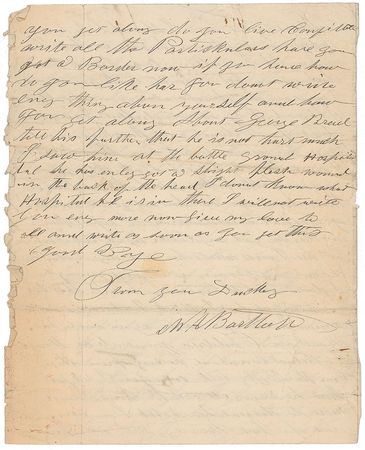 you get along do you live Comfitable
write all the Particklulars have you
got a Border now if you have how
do you like her you dount write
eney thing about yourself and how
you get along About George Breed
tell his further that he is not hurt much
I saw him at the battle ground Hospital
he has onley got a slight flesh wound
in the back of the head I dount know what
Hospital he is in there I will not write
eney more now give my love to
all and write as soon as you get this
good Bye
From you
W A Bartlett